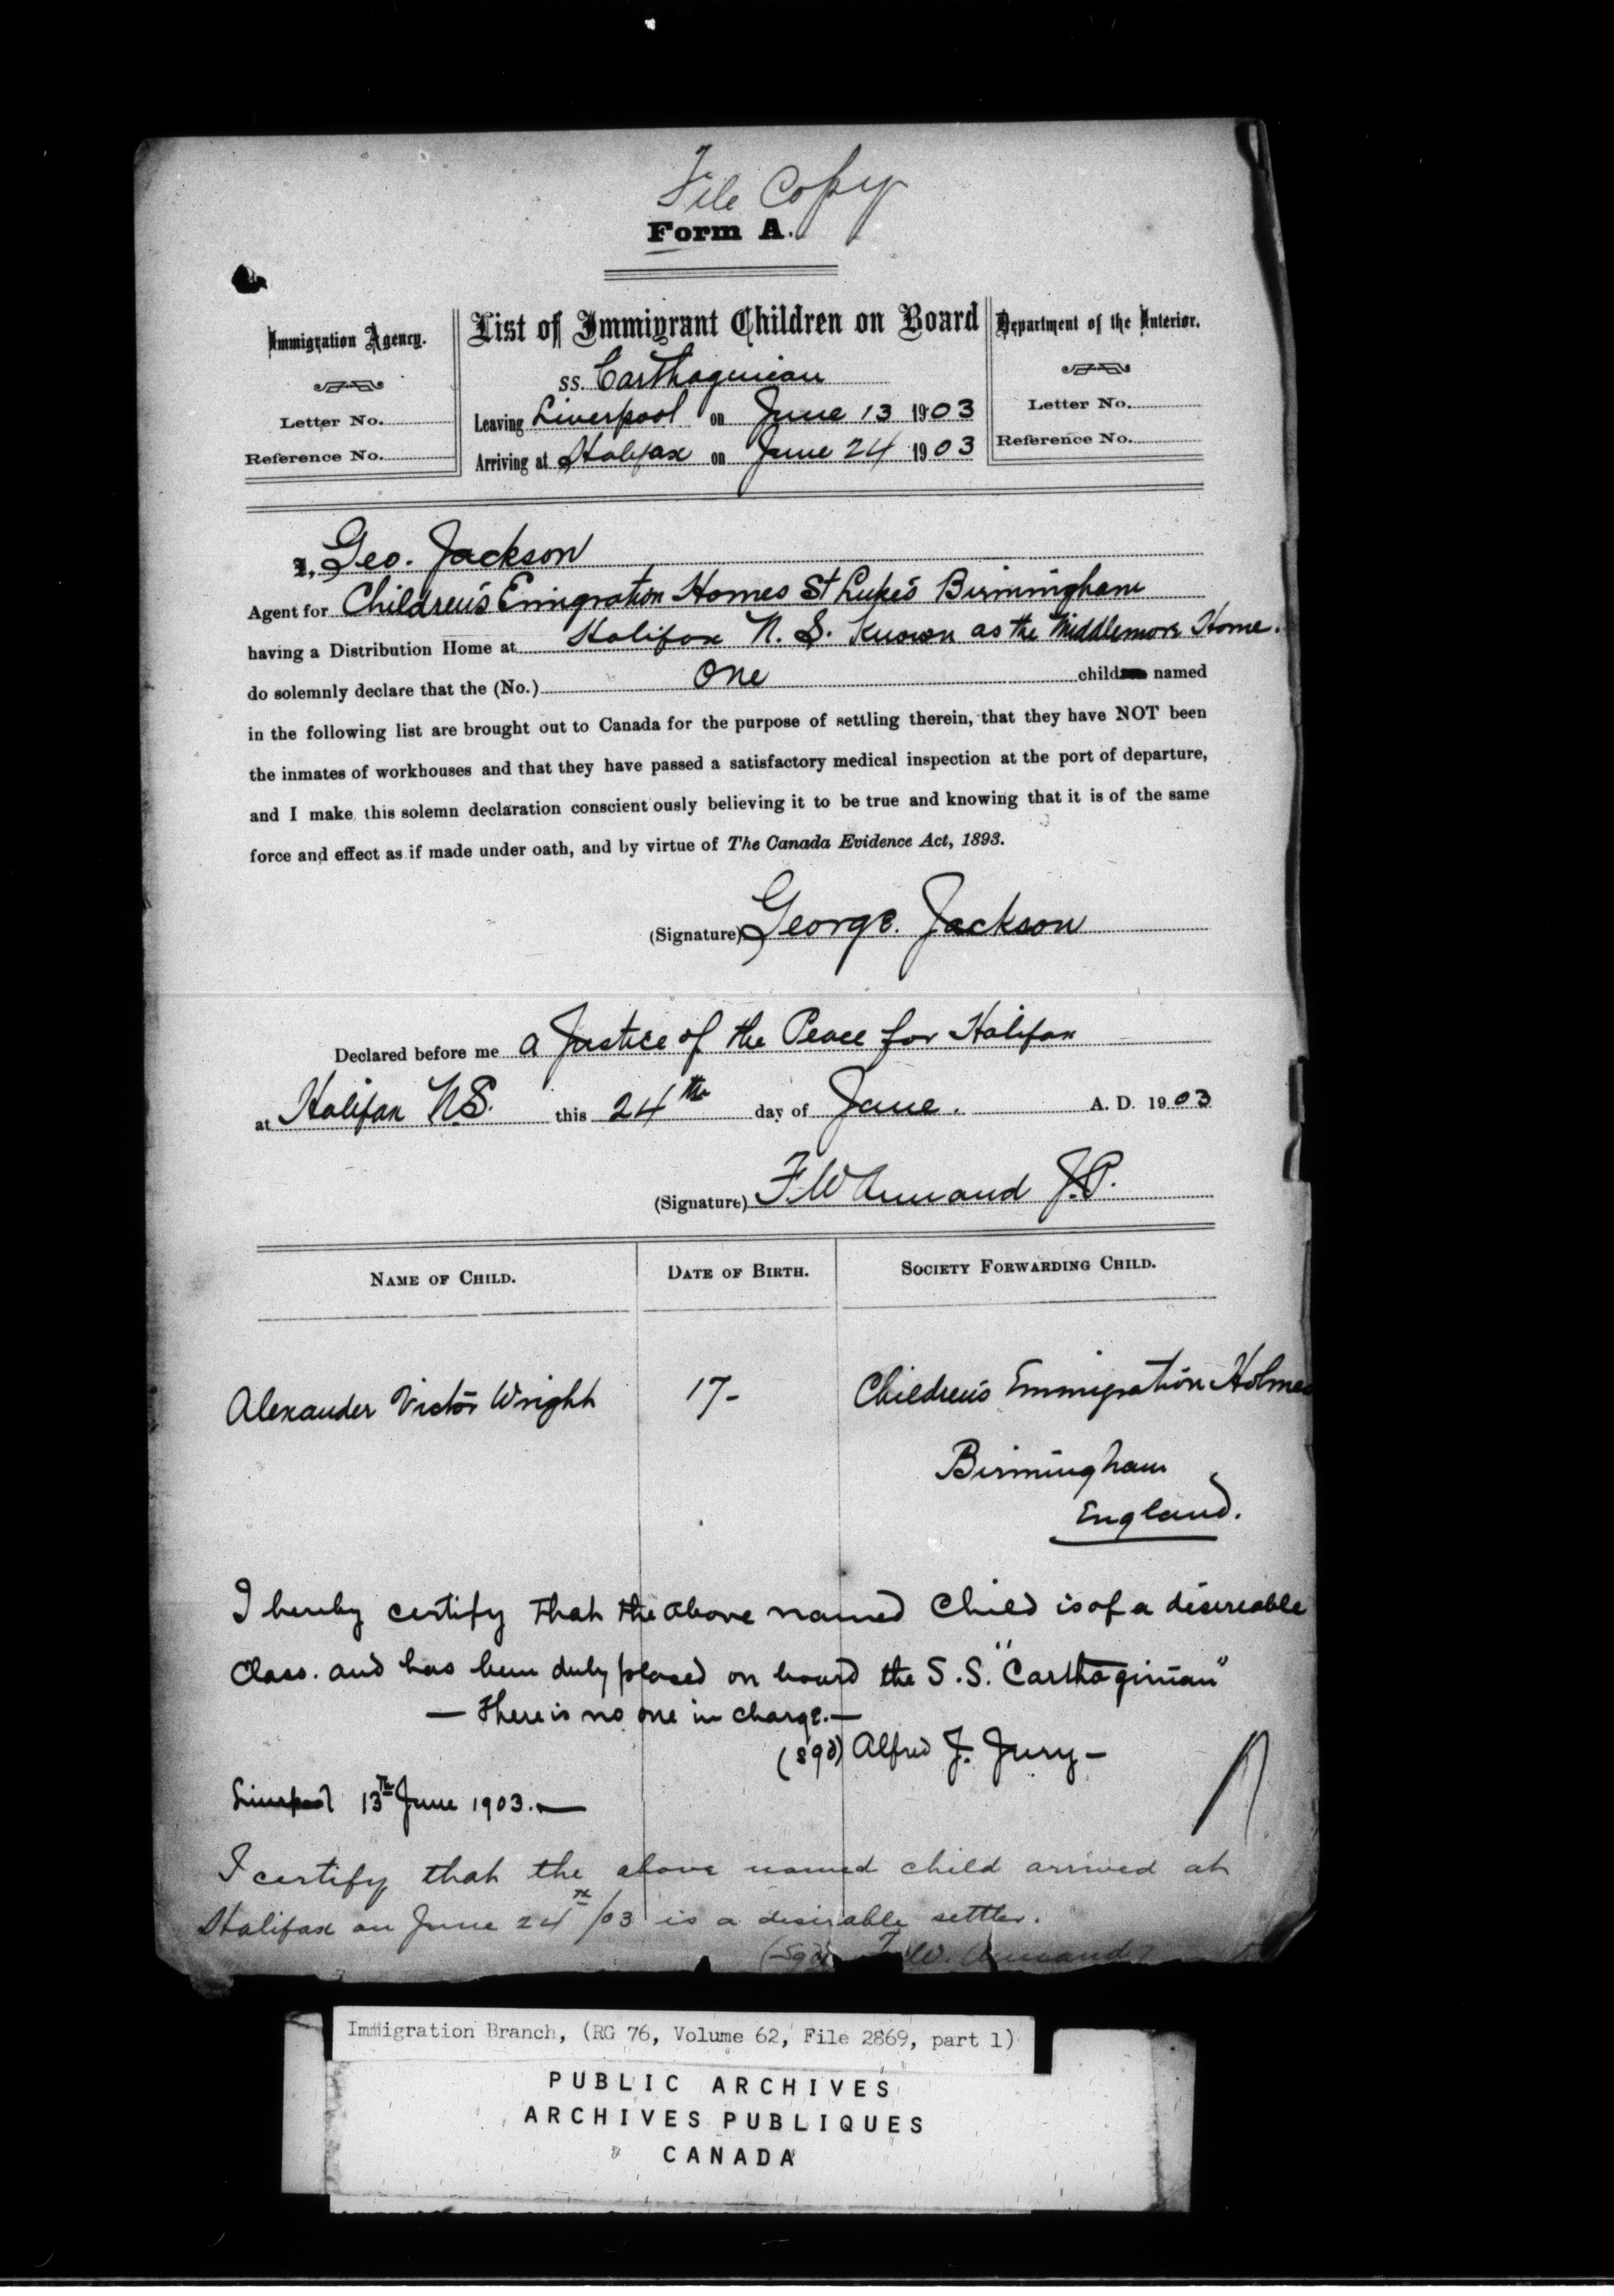 File Copy
Form A.
Immigration Agency.
Letter No.
Reference No.
List of Immigrant Children on Board
SS. Carthaginian
Leaving Liverpool on June 13 1903
Arriving at Halifax on June 24 1903
Department of the Interior.
Letter No.
Reference No.
I, Geo. Jackson
Agent for Children's Emigration Homes St Luke's Birmingham
having a Distribution Home at Halifax N. S. Known as the Middlemore Home.
do solemnly declare that the (No.) One child named
in the following list are brought out to Canada for the purpose of settling therein, that they have NOT been
the inmates of workhouses and that they have passed a satisfactory medical inspection at the port of departure,
and I make this solemn declaration conscient ously believing it to be true and knowing that it is of the same
force and effect as if made under oath, and by virtue of The Canada Evidence Act, 1893.
(Signature) George. Jackson
Declared before me a Justice of the Peace for Halifax
at Halifax N.S. this 24th day of June. A. D. 1903
(Signature) F.W Annand J.P.
NAME OF CHILD. DATE OF BIRTH. SOCIETY FORWARDING CHILD.
Alexander Victor Wright 17- Children's Emmigration Holmes
Birmingham
England.
I hereby certify that the above named Child is of a desireable
Class. and has been duly placed on board the S.S. "Carthaginian"
— There is no one in charge.—
(sgd) Alfred J. Jury —
Liverpool 13th June 1903.—
I certify that the above named child arrived at
Halifax on June 24th/03 is a desirable settler.
(Sgd) F. W. Annand
Immigration Branch, (RG 76, Volume 62, File 2869, part 1)
PUBLIC ARCHIVES
ARCHIVES PUBLIQUES
CANADA